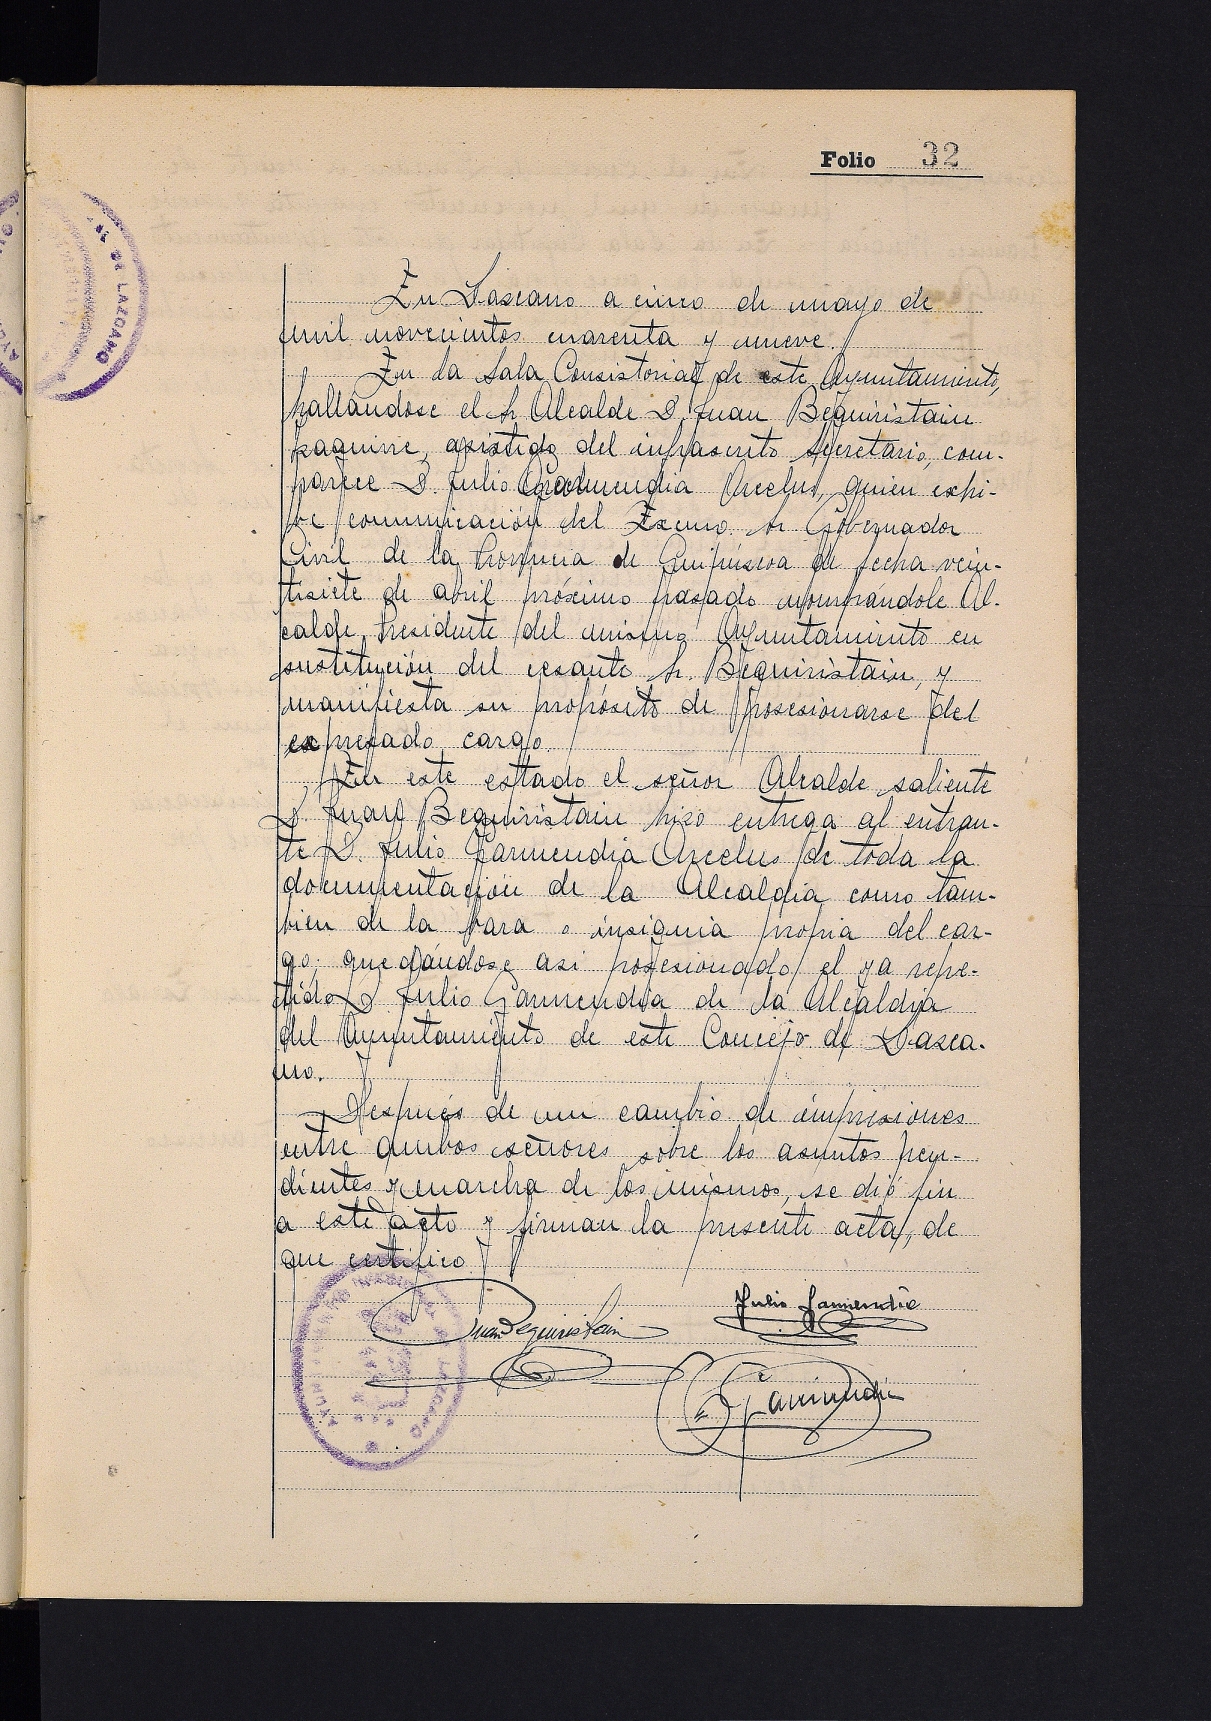 Folio 32
En Lazcano a cinco de mayo de
mil novecientos cuarenta y nueve.
En la Sala Consistorial de este Ayuntamiento,
hallándose el Sr Alcalde D. Juan Beguiristain
asistido del infrascrito Secretario, com-
parece D. Julio Garmendia Arcelus, quien exhi-
be comunicación del Excmo. Sr Gobernador
Civil de la Provincia de Guipúzcoa de fecha vein-
tisiete de abril próximo pasado nombrandole Al-
calde Presidente del mismo Ayuntamiento en
sustitución del cesante Sr. Beguiristain, y
manifiesta su propósito de posesionarse del
expresado cargo.
En este estado el señor Alcalde saliente
D. Juan Beguiristain hizo entrega al entran-
te D. Julio Garmendia Arcelus de toda la
documentación de la Alcaldia como tam-
bien de la vara o insignia propia del car-
go; quedándose asi posesionado el ya repe-
tido D. Julio Garmendia de la Alcaldia
del Ayuntamiento de este Concejo de Lazca-
no.
Después de un cambio de impresiones
entre ambos señores sobre los asuntos pen-
dientes y marcha de los mismos, se dió fin
a este acto y firman la presente acta, de
que certifico
Juan Beguiristain
Julio Garmendia
Garmendia
DE LAZCANO